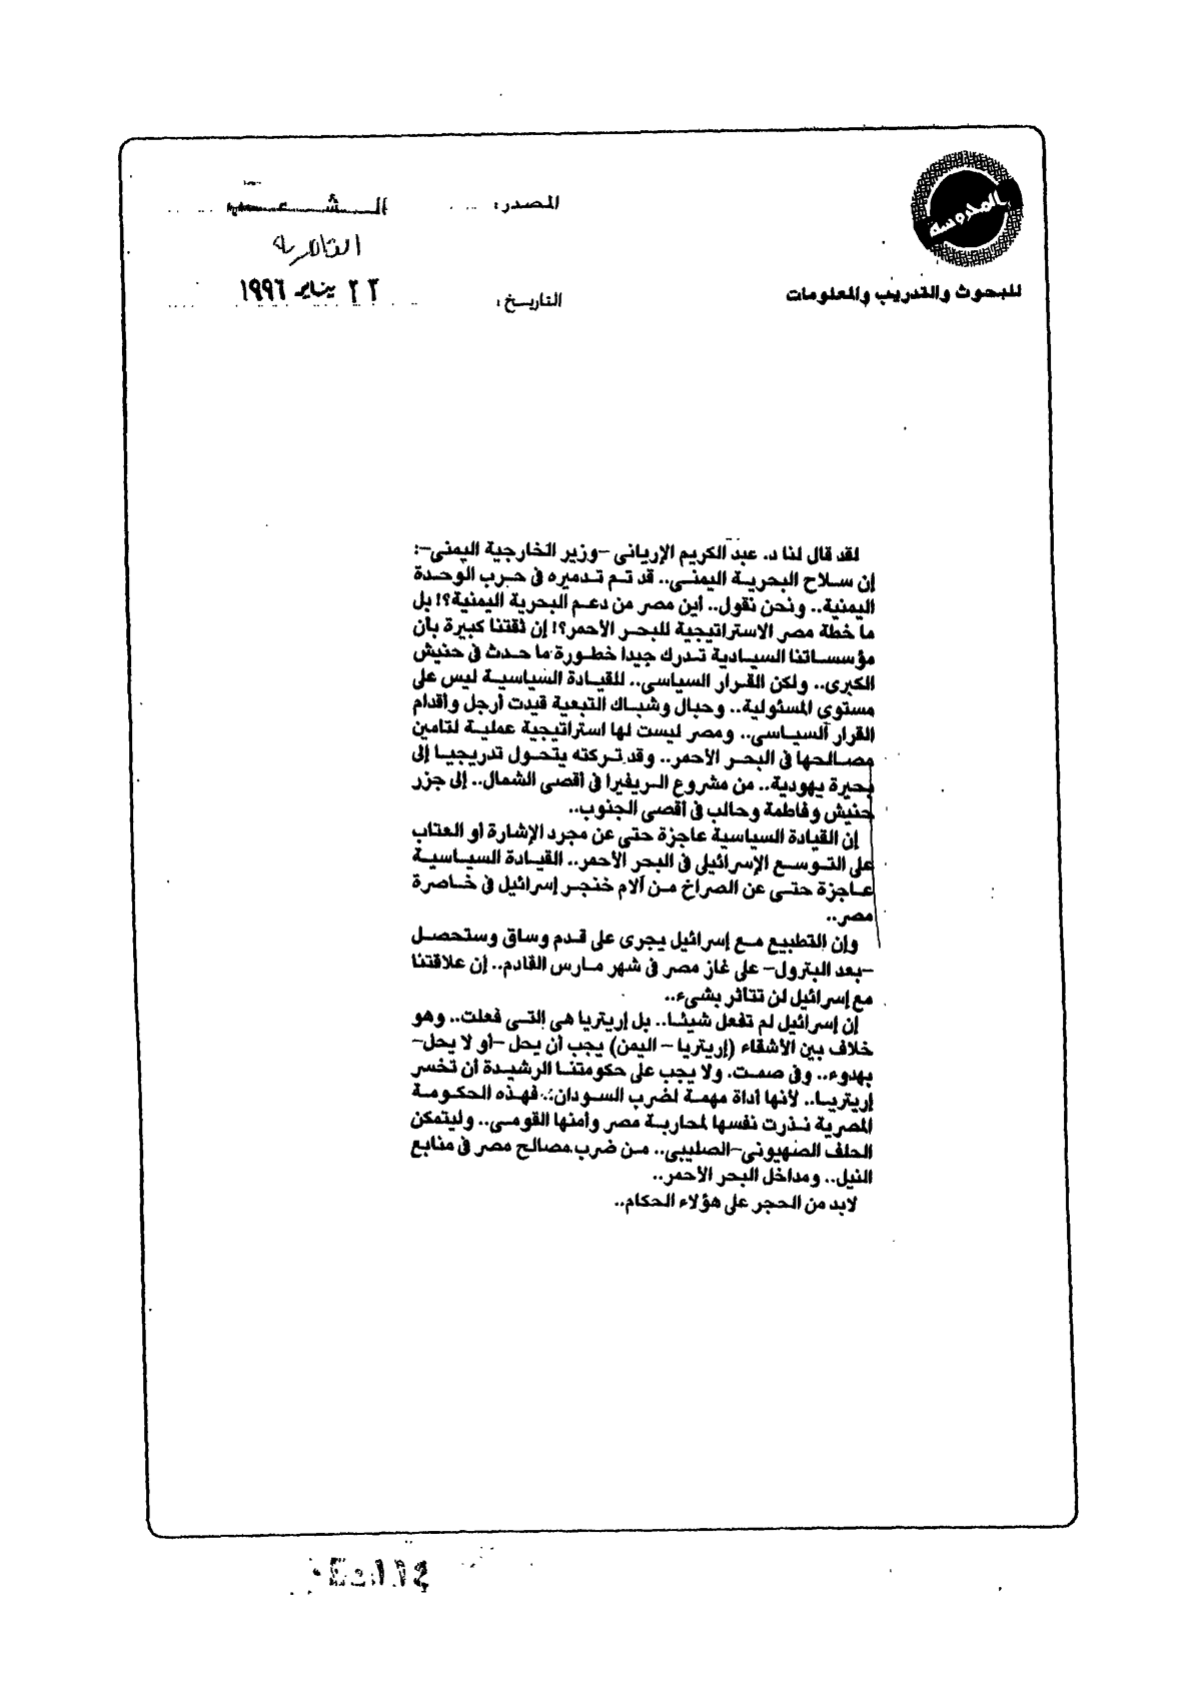 المحروسة
للبحوث والتدريب والمعلومات
المصدر: الشعب
القاهرية
التاريخ: ٢٣ يناير ١٩٩٦
لقد قال لنا د. عبد الكريم الإريانى -وزير الخارجية اليمنى-:
إن سلاح البحرية اليمنى.. قد تم تدميره فى حرب الوحدة
اليمنية.. ونحن نقول.. أين مصر من دعم البحرية اليمنية؟! بل
ما خطة مصر الاستراتيجية للبحر الأحمر؟! إن ثقتنا كبيرة بأن
مؤسساتنا السيادية تدرك جيدا خطورة ما حدث فى حنيش
الكبرى.. ولكن القرار السياسى.. للقيادة السياسية ليس على
مستوى المسئولية.. وحبال وشباك التبعية قيدت أرجل وأقدام
القرار السياسى.. ومصر ليست لها استراتيجية عملية لتامين
مصالحها فى البحر الأحمر.. وقد تركته يتحول تدريجيا إلى
بحيرة يهودية.. من مشروع الريفيرا فى أقصى الشمال.. إلى جزر
حنيش وفاطمة وحالب فى أقصى الجنوب..
إن القيادة السياسية عاجزة حتى عن مجرد الإشارة أو العتاب
على التوسع الإسرائيلى فى البحر الأحمر.. القيادة السياسية
عاجزة حتى عن الصراخ من آلام خنجر إسرائيل فى خاصرة
مصر..
وإن التطبيع مع إسرائيل يجرى على قدم وساق وستحصل
-بعد البترول- على غاز مصر فى شهر مارس القادم.. إن علاقتنا
مع إسرائيل لن تتأثر بشىء..
إن إسرائيل لم تفعل شيئا.. بل إريتريا هى التى فعلت.. وهو
خلاف بين الأشقاء (إريتريا - اليمن) يجب أن يحل -أو لا يحل-
بهدوء.. وفى صمت. ولا يجب على حكومتنا الرشيدة أن تخسر
إريتريا.. لأنها أداة مهمة لضرب السودان.. فهذه الحكومة
المصرية نذرت نفسها لمحاربة مصر وأمنها القومى.. وليتمكن
الحلف الصهيونى-الصليبى.. من ضرب مصالح مصر فى منابع
النيل.. ومداخل البحر الأحمر..
لابد من الحجر على هؤلاء الحكام..